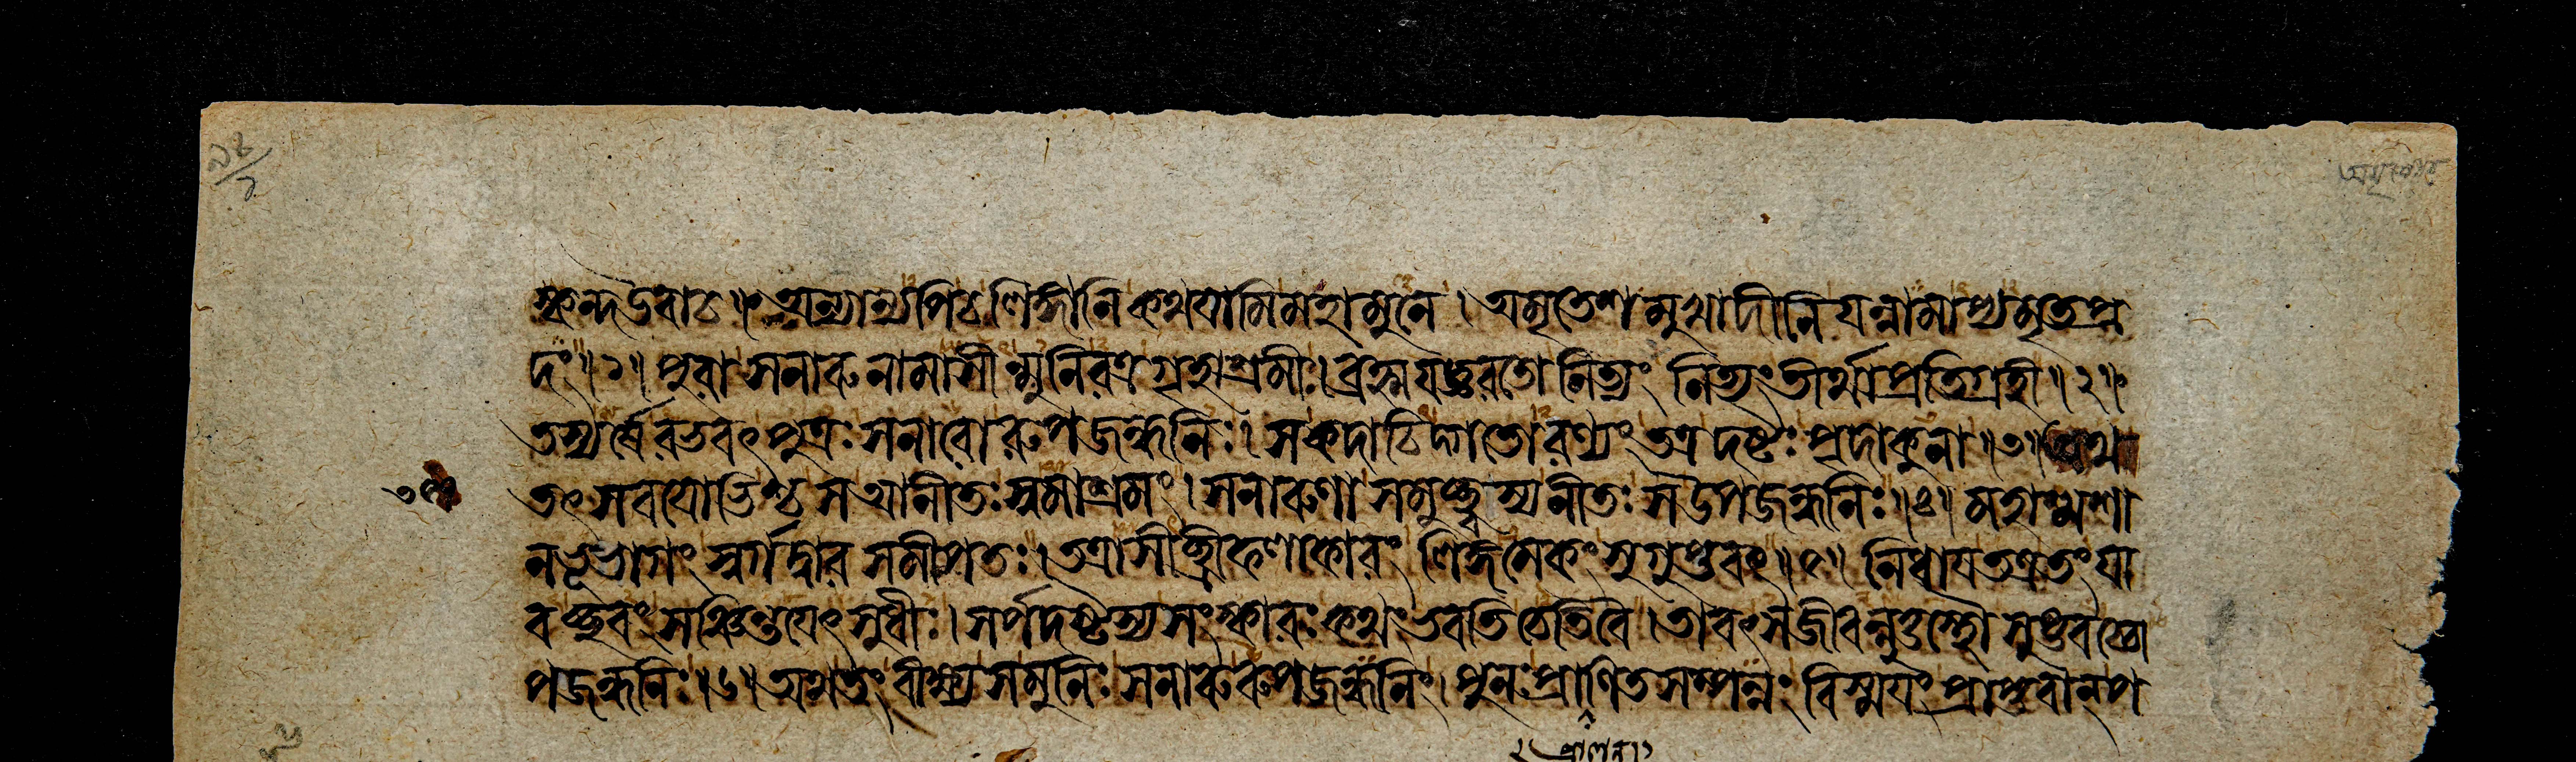 স্কন্দউবাচ॥ অন্যান্যপিচলিঙ্গানিকথযামিমহামুনে। অমৃতেশমুখাদীনিযন্নামাপ্যমৃতপ্র
দং॥১॥ পুরাসনারুনামাসীন্মুনিরত্রগৃহাশ্রমীঃ। ব্রহ্মযজ্ঞরতোনিত্যং নিত্যংতীর্থাপ্রতিগ্রহী॥২॥
তস্যর্ষেরভবৎপুত্রঃসনারোরুপজঙ্ঘনিঃ। সকদাচিদ্গতোরণ্যং তত্রদষ্টঃপৃদাকুনা॥৩॥ অথ
তৎসবযোভিশ্চসআনীতঃস্বমাশ্রমং। সনারুণাসমুচ্ছ্বস্যনীতঃসউপজঙ্ঘনিঃ॥৪॥ মহাশ্মশা
নভূভাগং স্বর্গদ্বারসমীপতঃ। তত্রাসীচ্ছ্রীফলাকারং লিঙ্গমেকংসুগুপ্তবৎ॥৫॥ নিধাযতত্রতংযা
বচ্ছবংসঞ্চিন্তযেৎসুধীঃ। সর্পদষ্টস্যসংস্কারঃকথংভবতিচেতিবৈ। তাবৎসজীবন্নুত্তস্থৌসুপ্তবচ্চো
পজঙ্ঘনিঃ॥৬॥ অথতংবীক্ষ্যসমুনিঃসনারুরুপজঙ্ঘনিং। পুনঃপ্রাণিতসম্পন্নং বিস্মযংপ্রাপ্তবান্প